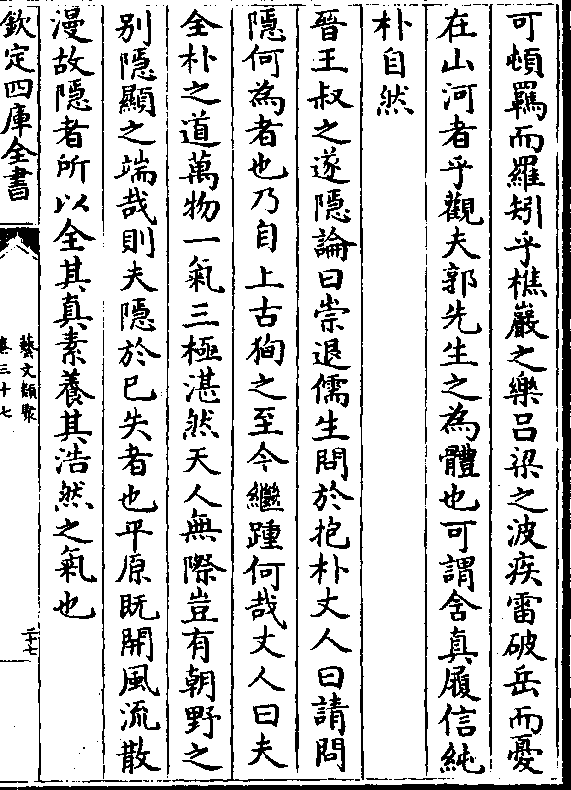 可頓羈而羅矧乎樵巖之樂呂梁之波疾雷破岳而憂
在山河者乎觀夫郭先生之為體也可謂含真履信純
朴自然
晉王叔之遂隱論曰崇退儒生問於抱朴丈人曰請問
隱何為者也乃自上古狥之至今繼踵何哉丈人曰夫
全朴之道萬物一氣三極湛然天人無際豈有朝野之
别隱顯之端哉則夫隱於已失者也平原既開風流散
漫故隱者所以全其真素養其浩然之氣也
欽定四庫全書
藝文類聚
卷三十七
二十七